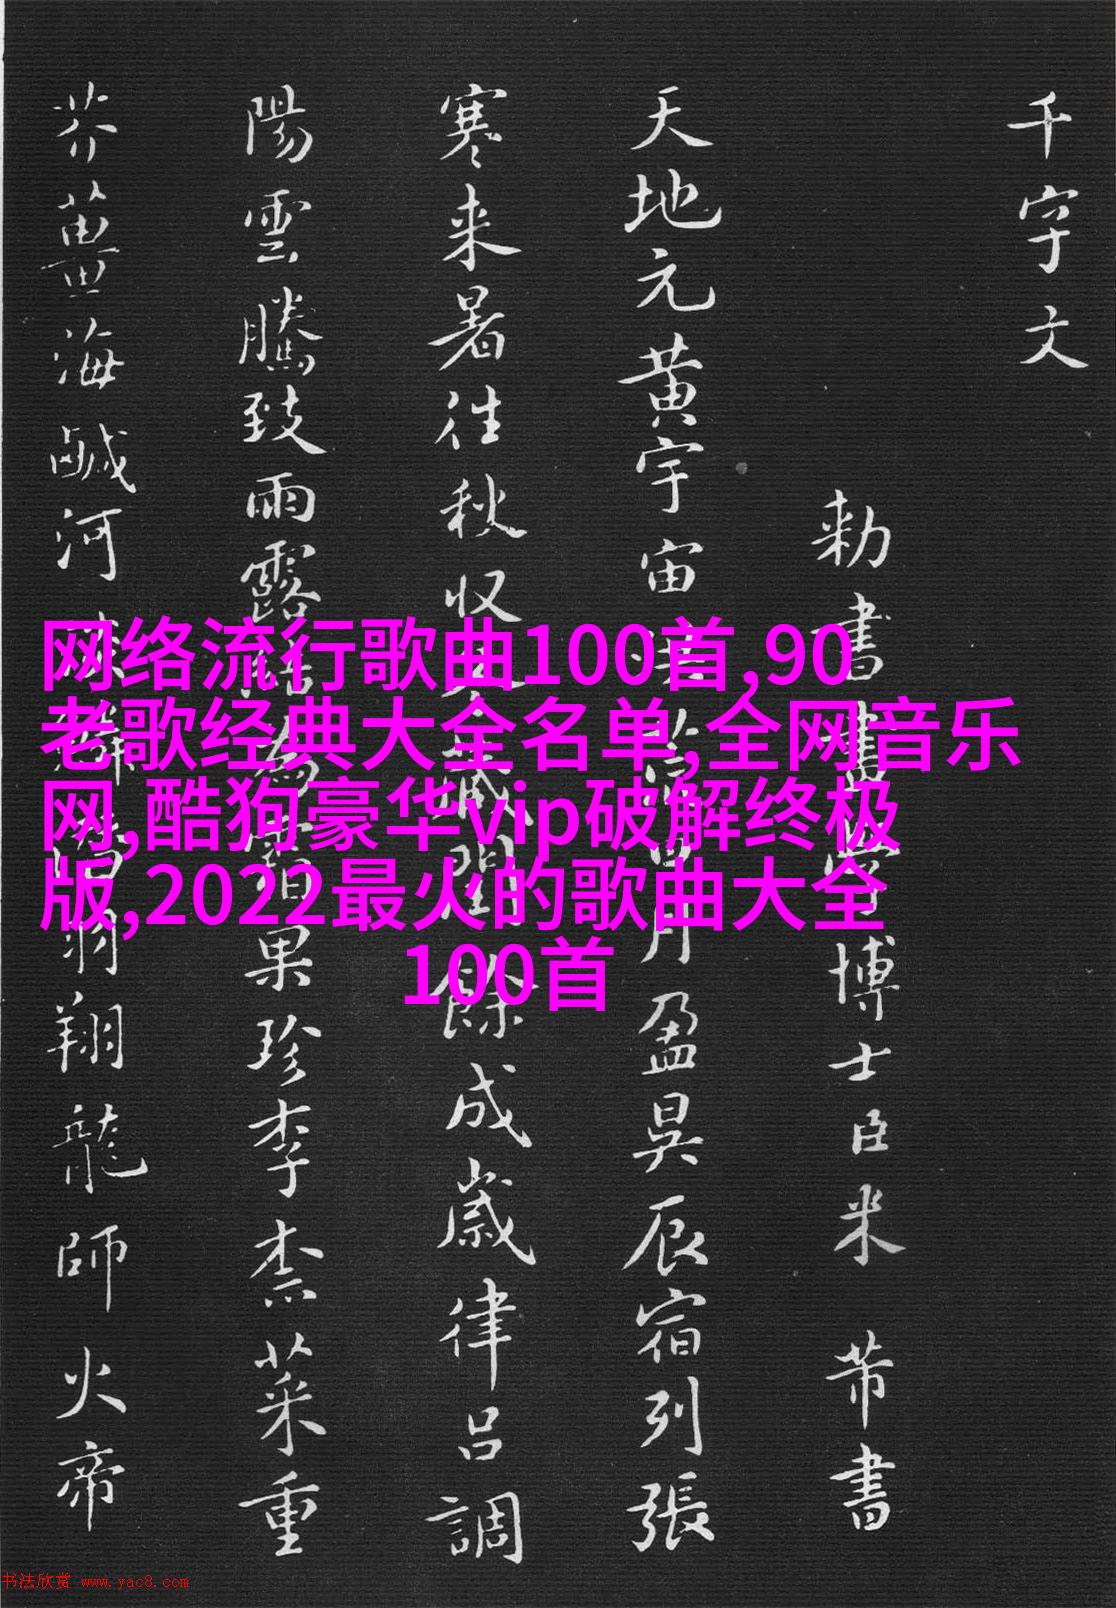 千字文
勅書畫學博士臣米芾書
天地元黄宇宙洪荒日月盈昃辰宿列張
寒来暑往秋収冬藏閏餘成歲律呂調
陽雲騰致雨露結為霜果珍李柰菜重
芥薑海鹹河淡鱗潛羽翔龍師火帝
网络流行歌曲100首,90
老歌经典大全名单,全网音乐
网,酷狗豪华vip破解终极
版,2022最火的歌曲大全
100首
书法欣赏 www.yac8.com